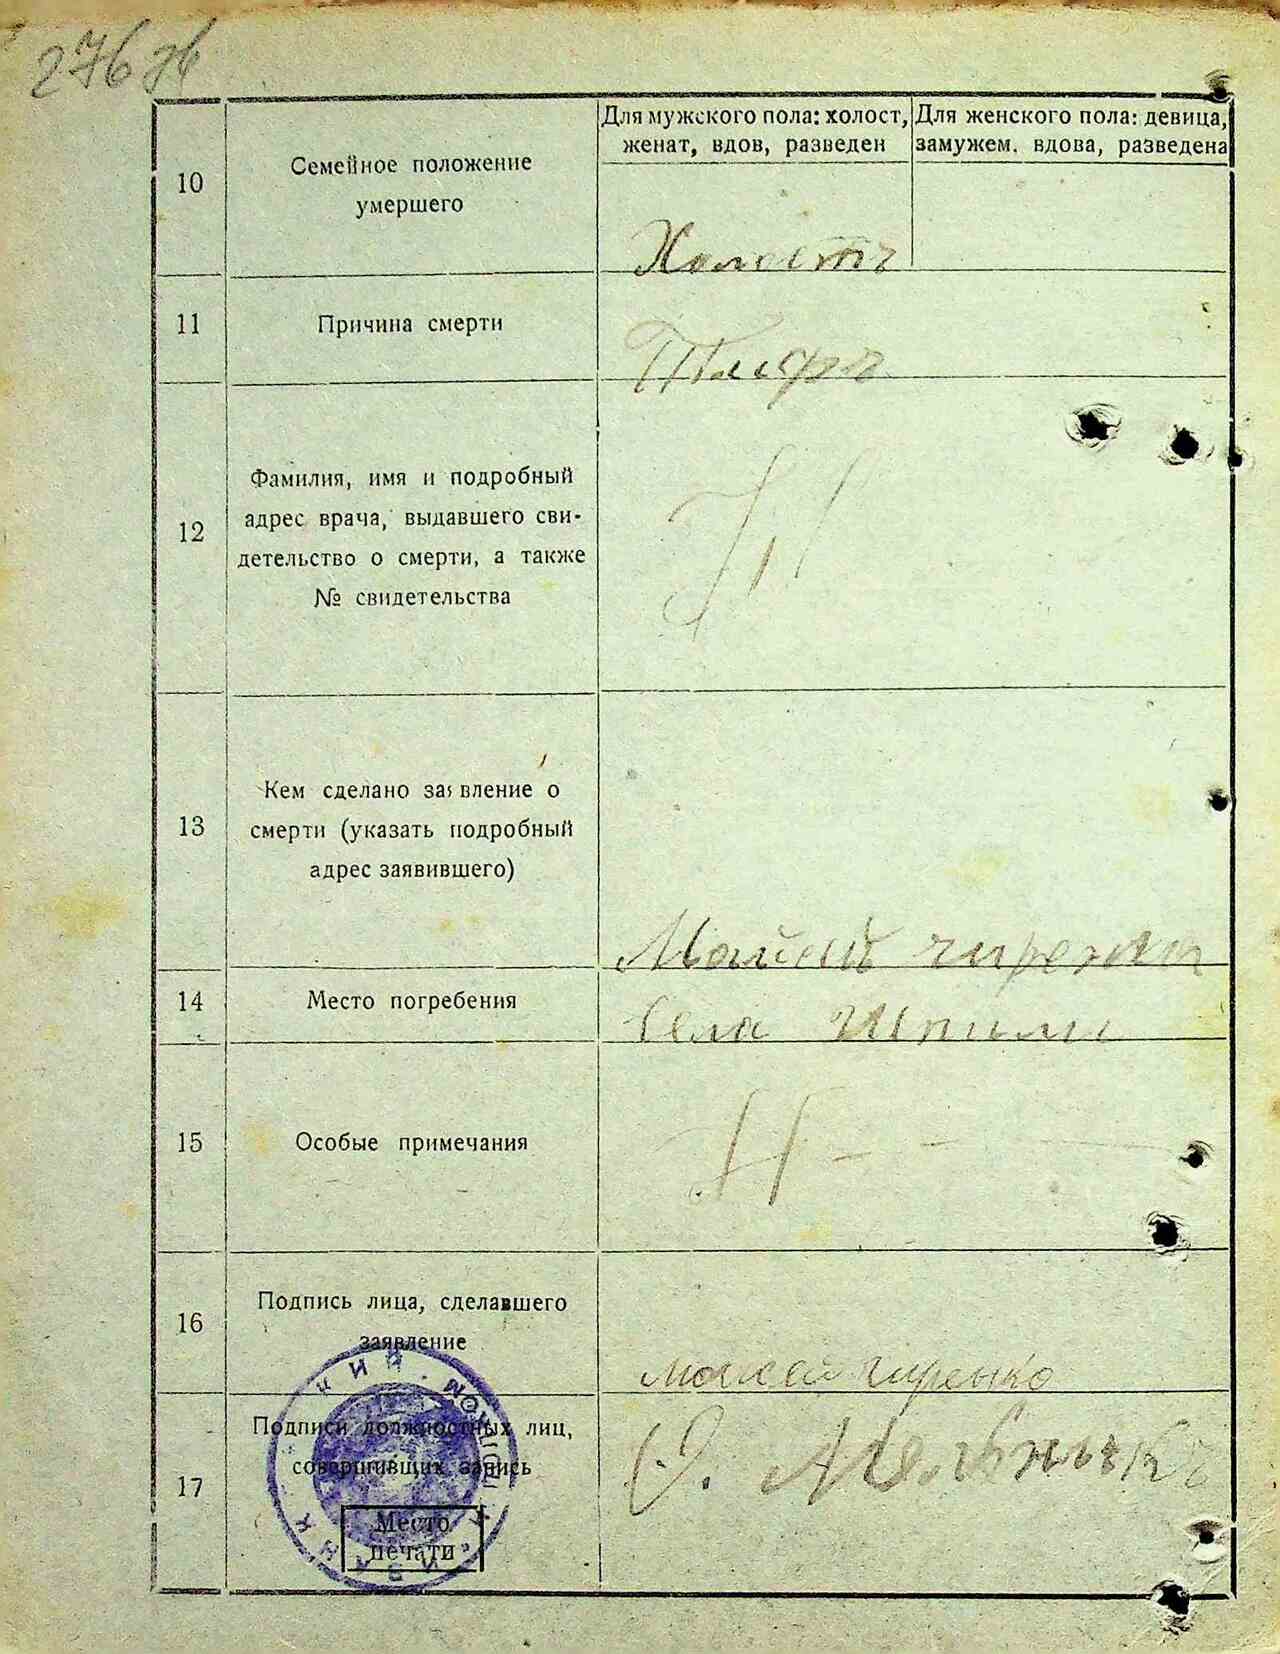 276
Для мужского пола: холост,
женат, вдов, разведен
Для женского пола: девица,
замужем, вдова, разведена
10
Семейное положение
умершего
Холостъ
11
Причина смерти
Тифъ
12
Фамилия, имя и подробный
адрес врача, выдавшего сви-
детельство о смерти, а также
№ свидетельства
13
Кем сделано заявление о
смерти (указать подробный
адрес заявившего)
14
Место погребения
Села
15
Особые примечания
16
Подпись лица, сделавшего
заявление
17
Подписи должностных лиц,
совершивших запись
Место
печати